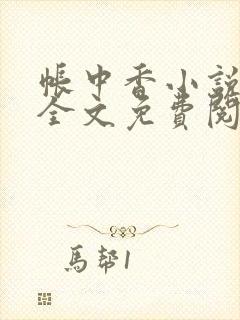 帳中香小說
全文免費閱
馬幫1